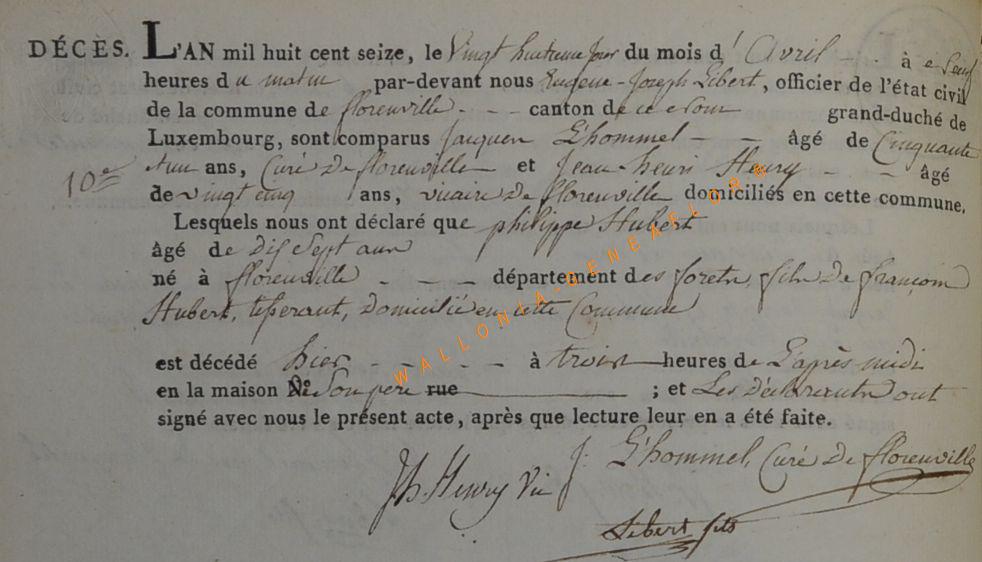 DÉCÈS. L'AN mil huit cent seize, le Vingt huitieme jour du mois d'Avril - - à
heures du matin par-devant nous Eugene-Joseph Libert, officier de l'état civil
de la commune de florenville - - canton de grand-duché de
Luxembourg, sont comparus Jacques L'hommel - - âgé de Cinquante
10e
ans, Curé de florenville et Jean henri Henry - - âgé
de vingt cinq ans, vicaire de florenville domiciliés en cette commune.
Lesquels nous ont déclaré que philippe Hubert
âgé de dix Sept ans
né à florenville - - - département des forets, fils de françois
Hubert, tisserant, domicilié en cette Commune
est décédé hier - - - à trois heures de L'après midi
en la maison De Son pere rue ; et Les déclarants ont
signé avec nous le présent acte, après que lecture leur en a été faite.
J: L'hommel, Curé De florenville
Jh. Henry Vic
Libert fils
WALLONIA-GENEAFLORE